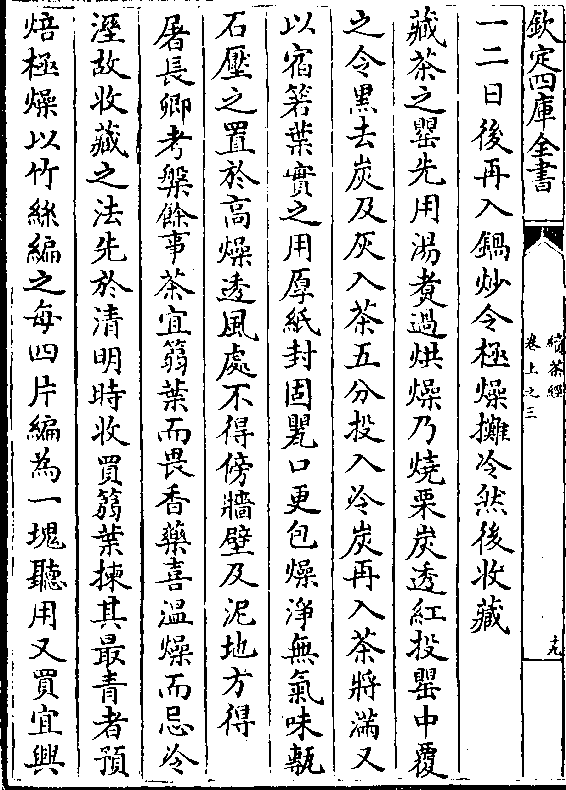 欽定四庫全書
續茶經
卷上之三
十九
一二日後再入鍋炒令極燥攤冷然後收藏
藏茶之罌先用湯煮過烘燥乃燒栗炭透紅投罌中覆
之令黑去炭及灰入茶五分投入冷炭再入茶將滿又
以宿箬葉實之用厚紙封固甖口更包燥淨無氣味甎
石壓之置於高燥透風處不得傍牆壁及泥地方得
屠長卿考槃餘事茶宜篛葉而畏香藥喜溫燥而忌冷
溼故收藏之法先於清明時收買篛葉揀其最青者預
焙極燥以竹絲編之每四片編為一塊聽用又買宜興